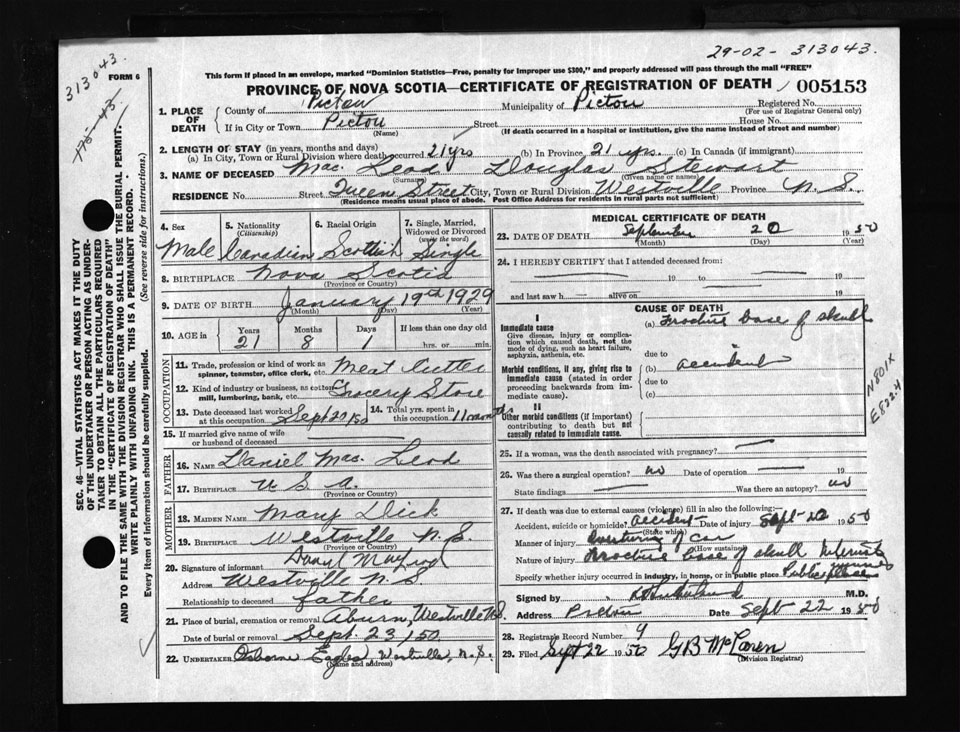 29-02- 313043.
313043.
FORM 6
175-43
This form if placed in an envelope, marked "Dominion Statistics—Free, penalty for improper use $300," and properly addressed will pass through the mail "FREE"
PROVINCE OF NOVA SCOTIA—CERTIFICATE OF REGISTRATION OF DEATH 005153
SEC. 46—VITAL STATISTICS ACT MAKES IT THE DUTY
OF THE UNDERTAKER OR PERSON ACTING AS UNDER-
TAKER TO OBTAIN ALL THE PARTICULARS REQUIRED
IN THE "CERTIFICATE OF REGISTRATION OF DEATH"
AND TO FILE THE SAME WITH THE DIVISION REGISTRAR WHO SHALL ISSUE THE BURIAL PERMIT.
WRITE PLAINLY WITH UNFADING INK. THIS IS A PERMANENT RECORD.
Every item of information should be carefully supplied. (See reverse side for instructions.)
1. PLACE OF DEATH
County of Pictou Municipality of Pictou Registered No.
(For use of Registrar General only)
If in City or Town Pictou Street House No.
(Name) (If death occurred in a hospital or institution, give the name instead of street and number)
2. LENGTH OF STAY (in years, months and days)
(a) In City, Town or Rural Division where death occurred 21 yrs (b) In Province 21 yrs. (c) In Canada (if immigrant)
3. NAME OF DECEASED Mac Leod Douglas Stewart
(Surname) (Given name or names)
RESIDENCE No. Street Queen Street City, Town or Rural Division Westville Province N.S.
(Residence means usual place of abode. Post Office Address for residents in rural parts not sufficient)
4. Sex 5. Nationality (Citizenship) 6. Racial Origin 7. Single, Married, Widowed or Divorced (write the word)
Male Canadian Scottish Single
8. BIRTHPLACE Nova Scotia
(Province or Country)
9. DATE OF BIRTH January 19th 1929
(Month) (Day) (Year)
10. AGE in Years Months Days If less than one day old
21 8 1 hrs. or min.
OCCUPATION
11. Trade, profession or kind of work as spinner, teamster, office clerk, etc. Meat Cutter
12. Kind of industry or business, as cotton mill, lumbering, bank, etc. Grocery Store
13. Date deceased last worked at this occupation Sept 20/50 14. Total yrs. spent in this occupation 11 months
15. If married give name of wife or husband of deceased
FATHER
16. NAME Daniel Mac Leod
17. BIRTHPLACE U S A.
(Province or Country)
MOTHER
18. MAIDEN NAME Mary Dick
19. BIRTHPLACE Westville N.S.
(Province or Country)
20. Signature of informant
Address Westville N.S.
Relationship to deceased father
21. Place of burial, cremation or removal Westville N.S.
Date of burial or removal Sept. 23/50
22. UNDERTAKER Osborne Eagles Westville, N.S.
(Name and address)
MEDICAL CERTIFICATE OF DEATH
23. DATE OF DEATH September 20 1950
(Month) (Day) (Year)
24. I HEREBY CERTIFY that I attended deceased from:
19 to 19
and last saw h— alive on 19
CAUSE OF DEATH
I
Immediate cause (a) Fracture base of skull
Give disease, injury or complication which caused death, not the mode of dying, such as heart failure, asphyxia, asthenia, etc.
due to
(b) accident
Morbid conditions, if any, giving rise to immediate cause (stated in order proceeding backwards from immediate cause).
due to
(c)
II
Other morbid conditions (if important) contributing to death but not causally related to immediate cause.
N801X
E822.4
25. If a woman, was the death associated with pregnancy?
26. Was there a surgical operation? no Date of operation 19
State findings Was there an autopsy? no
27. If death was due to external causes (violence) fill in also the following:
Accident, suicide or homicide? accident Date of injury Sept 20 1950
(State which)
Manner of injury overturning of car
(How sustained)
Nature of injury Fracture base of skull Internal injuries
Specify whether injury occurred in industry, in home, or in public place Public place
Signed by M.D.
Address Pictou Date Sept 22 1950
28. Registrars Record Number 9
29. Filed Sept 22 1950 G B McLaren
(Division Registrar)